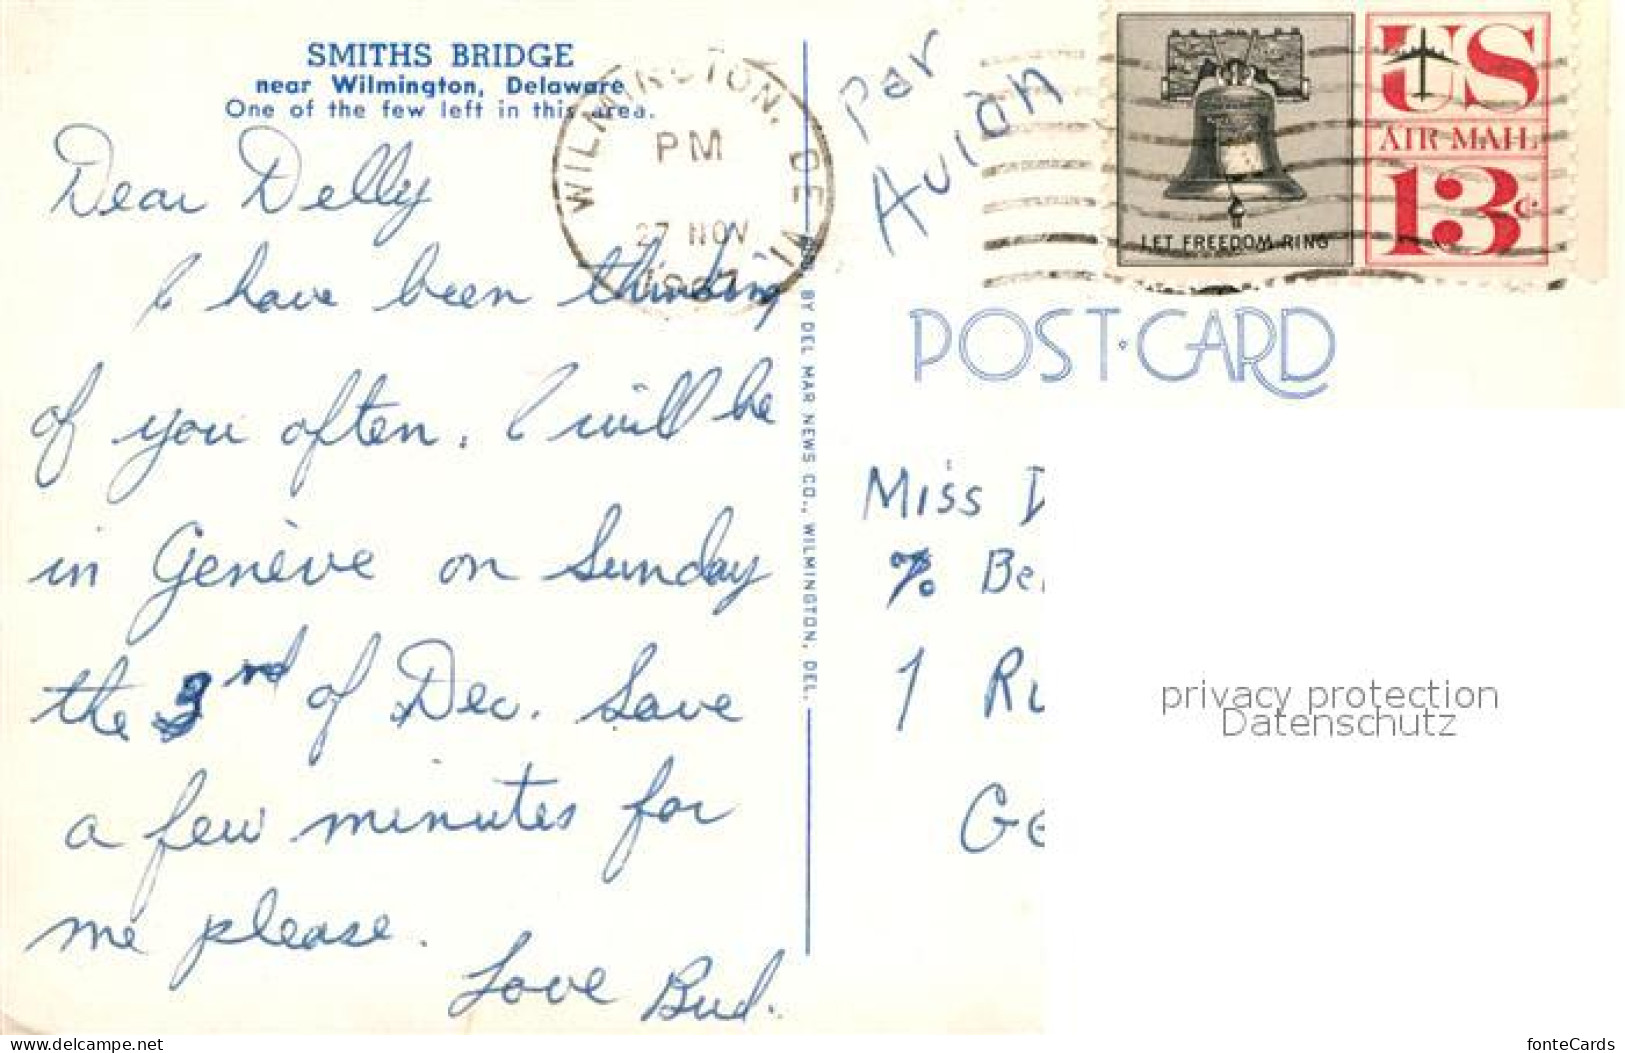 SMITHS BRIDGE
near Wilmington, Delaware
One of the few left in this area.
Dear Delly
I have been thinking
of you often. I will be
in Genève on Sunday
the 3rd of Dec. Save
a few minutes for
me please.
Love Bud.
WILMINGTON, DE
PM
27 NOV
BY DEL MAR NEWS CO., WILMINGTON, DEL.
Par
Avion
LET FREEDOM RING
US
AIR MAIL
13¢
POST·CARD
Miss
%
1
privacy protection
Datenschutz
delcampe.net
fonteCards